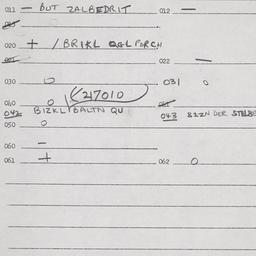 011 — BUT ZALBEDRIT 012 —
020 + / BRIKL QGL PORCH
022 —
030 O 031 O
040 O 217010
042 BIZKL BALTN QU 043 SIZN DER
050 O
060 —
061 + 062 O